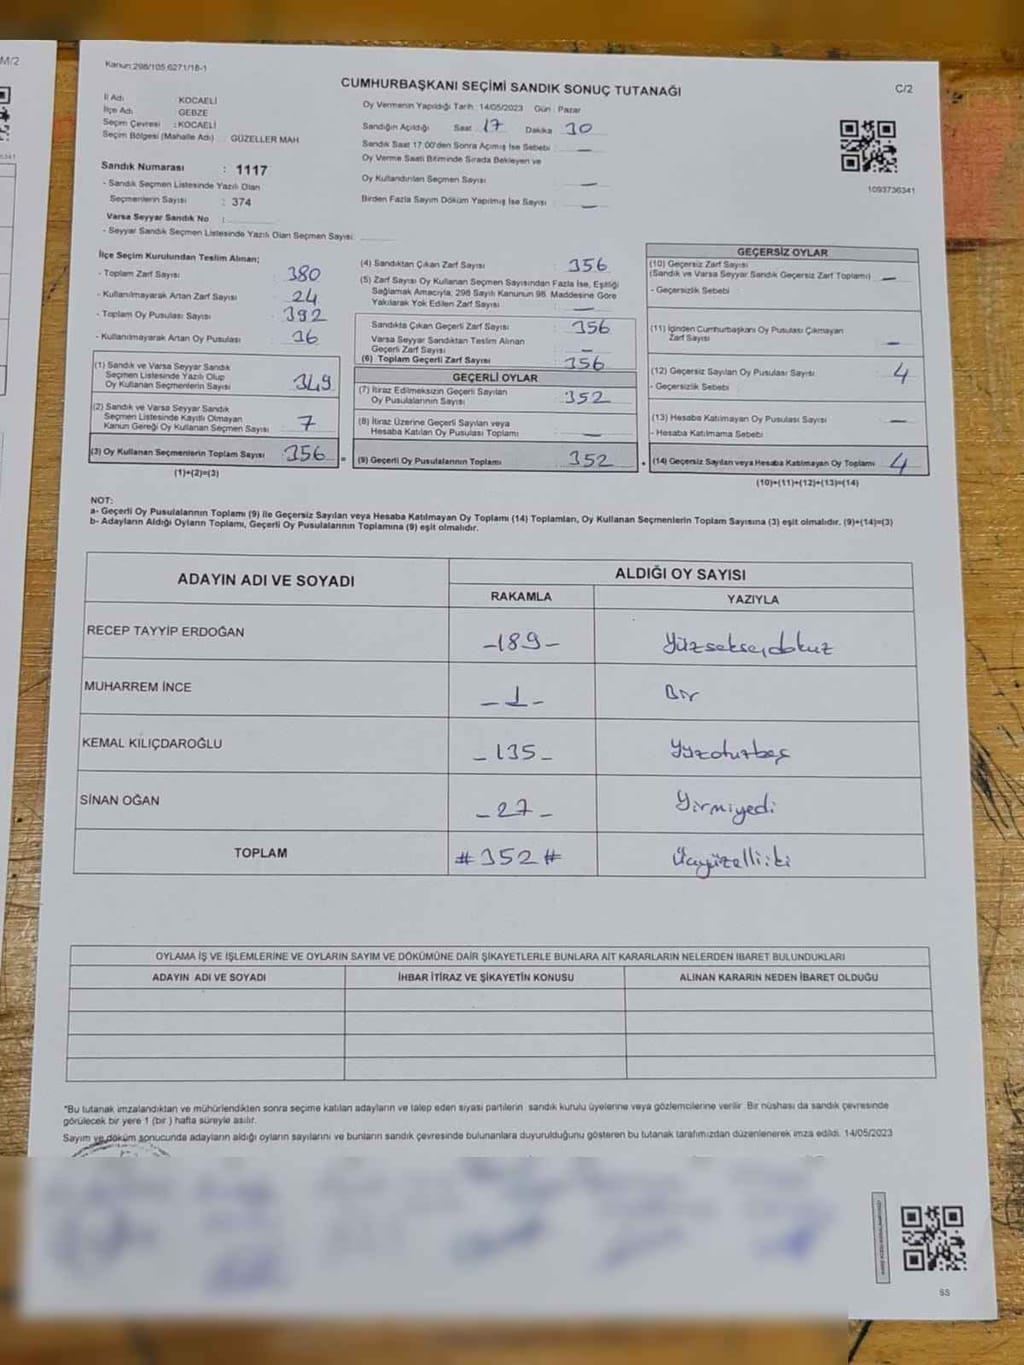 M/2
Kanun:298/105,6271/18-1
CUMHURBAŞKANI SEÇİMİ SANDIK SONUÇ TUTANAĞI
C/2
İl Adı KOCAELİ
İlçe Adı GEBZE
Seçim Çevresi : KOCAELİ
Seçim Bölgesi (Mahalle Adı) : GÜZELLER MAH
Sandık Numarası : 1117
- Sandık Seçmen Listesinde Yazılı Olan
Seçmenlerin Sayısı : 374
Varsa Seyyar Sandık No :
- Seyyar Sandık Seçmen Listesinde Yazılı Olan Seçmen Sayısı:
Oy Vermenin Yapıldığı Tarih : 14/05/2023 Gün : Pazar
Sandığın Açıldığı Saat 17 Dakika 10
Sandık Saat 17.00'den Sonra Açılmış İse Sebebi : —
Oy Verme Saati Bitiminde Sırada Bekleyen ve
Oy Kullandırılan Seçmen Sayısı : —
Birden Fazla Sayım Döküm Yapılmış İse Sayısı : —
1093736341
İlçe Seçim Kurulundan Teslim Alınan;
- Toplam Zarf Sayısı : 380
- Kullanılmayarak Artan Zarf Sayısı : 24
- Toplam Oy Pusulası Sayısı : 392
- Kullanılmayarak Artan Oy Pusulası : 36
(1) Sandık ve Varsa Seyyar Sandık
Seçmen Listesinde Yazılı Olup
Oy Kullanan Seçmenlerin Sayısı : 349
(2) Sandık ve Varsa Seyyar Sandık
Seçmen Listesinde Kayıtlı Olmayan
Kanun Gereği Oy Kullanan Seçmen Sayısı : 7
(3) Oy Kullanan Seçmenlerin Toplam Sayısı : 356
(1)+(2)=(3)
(4) Sandıktan Çıkan Zarf Sayısı : 356
(5) Zarf Sayısı Oy Kullanan Seçmen Sayısından Fazla İse, Eşitliği
Sağlamak Amacıyla, 298 Sayılı Kanunun 98. Maddesine Göre
Yakılarak Yok Edilen Zarf Sayısı : —
Sandıkta Çıkan Geçerli Zarf Sayısı : 356
Varsa Seyyar Sandıktan Teslim Alınan
Geçerli Zarf Sayısı : —
(6) Toplam Geçerli Zarf Sayısı : 356
GEÇERLİ OYLAR
(7) İtiraz Edilmeksizin Geçerli Sayılan
Oy Pusulalarının Sayısı : 352
(8) İtiraz Üzerine Geçerli Sayılan veya
Hesaba Katılan Oy Pusulası Toplamı : —
= (9) Geçerli Oy Pusulalarının Toplamı : 352
GEÇERSİZ OYLAR
(10) Geçersiz Zarf Sayısı
(Sandık ve Varsa Seyyar Sandık Geçersiz Zarf Toplamı) : —
- Geçersizlik Sebebi :
(11) İçinden Cumhurbaşkanı Oy Pusulası Çıkmayan
Zarf Sayısı : —
(12) Geçersiz Sayılan Oy Pusulası Sayısı : 4
- Geçersizlik Sebebi :
(13) Hesaba Katılmayan Oy Pusulası Sayısı : —
- Hesaba Katılmama Sebebi :
+ (14) Geçersiz Sayılan veya Hesaba Katılmayan Oy Toplamı : 4
(10)+(11)+(12)+(13)=(14)
NOT:
a- Geçerli Oy Pusulalarının Toplamı (9) ile Geçersiz Sayılan veya Hesaba Katılmayan Oy Toplamı (14) Toplamları, Oy Kullanan Seçmenlerin Toplam Sayısına (3) eşit olmalıdır. (9)+(14)=(3)
b- Adayların Aldığı Oyların Toplamı, Geçerli Oy Pusulalarının Toplamına (9) eşit olmalıdır.
ADAYIN ADI VE SOYADI ALDIĞI OY SAYISI
RAKAMLA YAZIYLA
RECEP TAYYİP ERDOĞAN –189– Yüzseksendokuz
MUHARREM İNCE –1– Bir
KEMAL KILIÇDAROĞLU –135– Yüzoturbeş
SİNAN OĞAN –27– Yirmiyedi
TOPLAM #352# Üçyüzelliiki
OYLAMA İŞ VE İŞLEMLERİNE VE OYLARIN SAYIM VE DÖKÜMÜNE DAİR ŞİKAYETLERLE BUNLARA AİT KARARLARIN NELERDEN İBARET BULUNDUKLARI
ADAYIN ADI VE SOYADI İHBAR İTİRAZ VE ŞİKAYETİN KONUSU ALINAN KARARIN NEDEN İBARET OLDUĞU
*Bu tutanak imzalandıktan ve mühürlendikten sonra seçime katılan adayların ve talep eden siyasi partilerin sandık kurulu üyelerine veya gözlemcilerine verilir. Bir nüshası da sandık çevresinde
görülecek bir yere 1 (bir ) hafta süreyle asılır.
Sayım ve döküm sonucunda adayların aldığı oyların sayılarını ve bunların sandık çevresinde bulunanlara duyurulduğunu gösteren bu tutanak tarafımızdan düzenlenerek imza edildi. 14/05/2023
SS